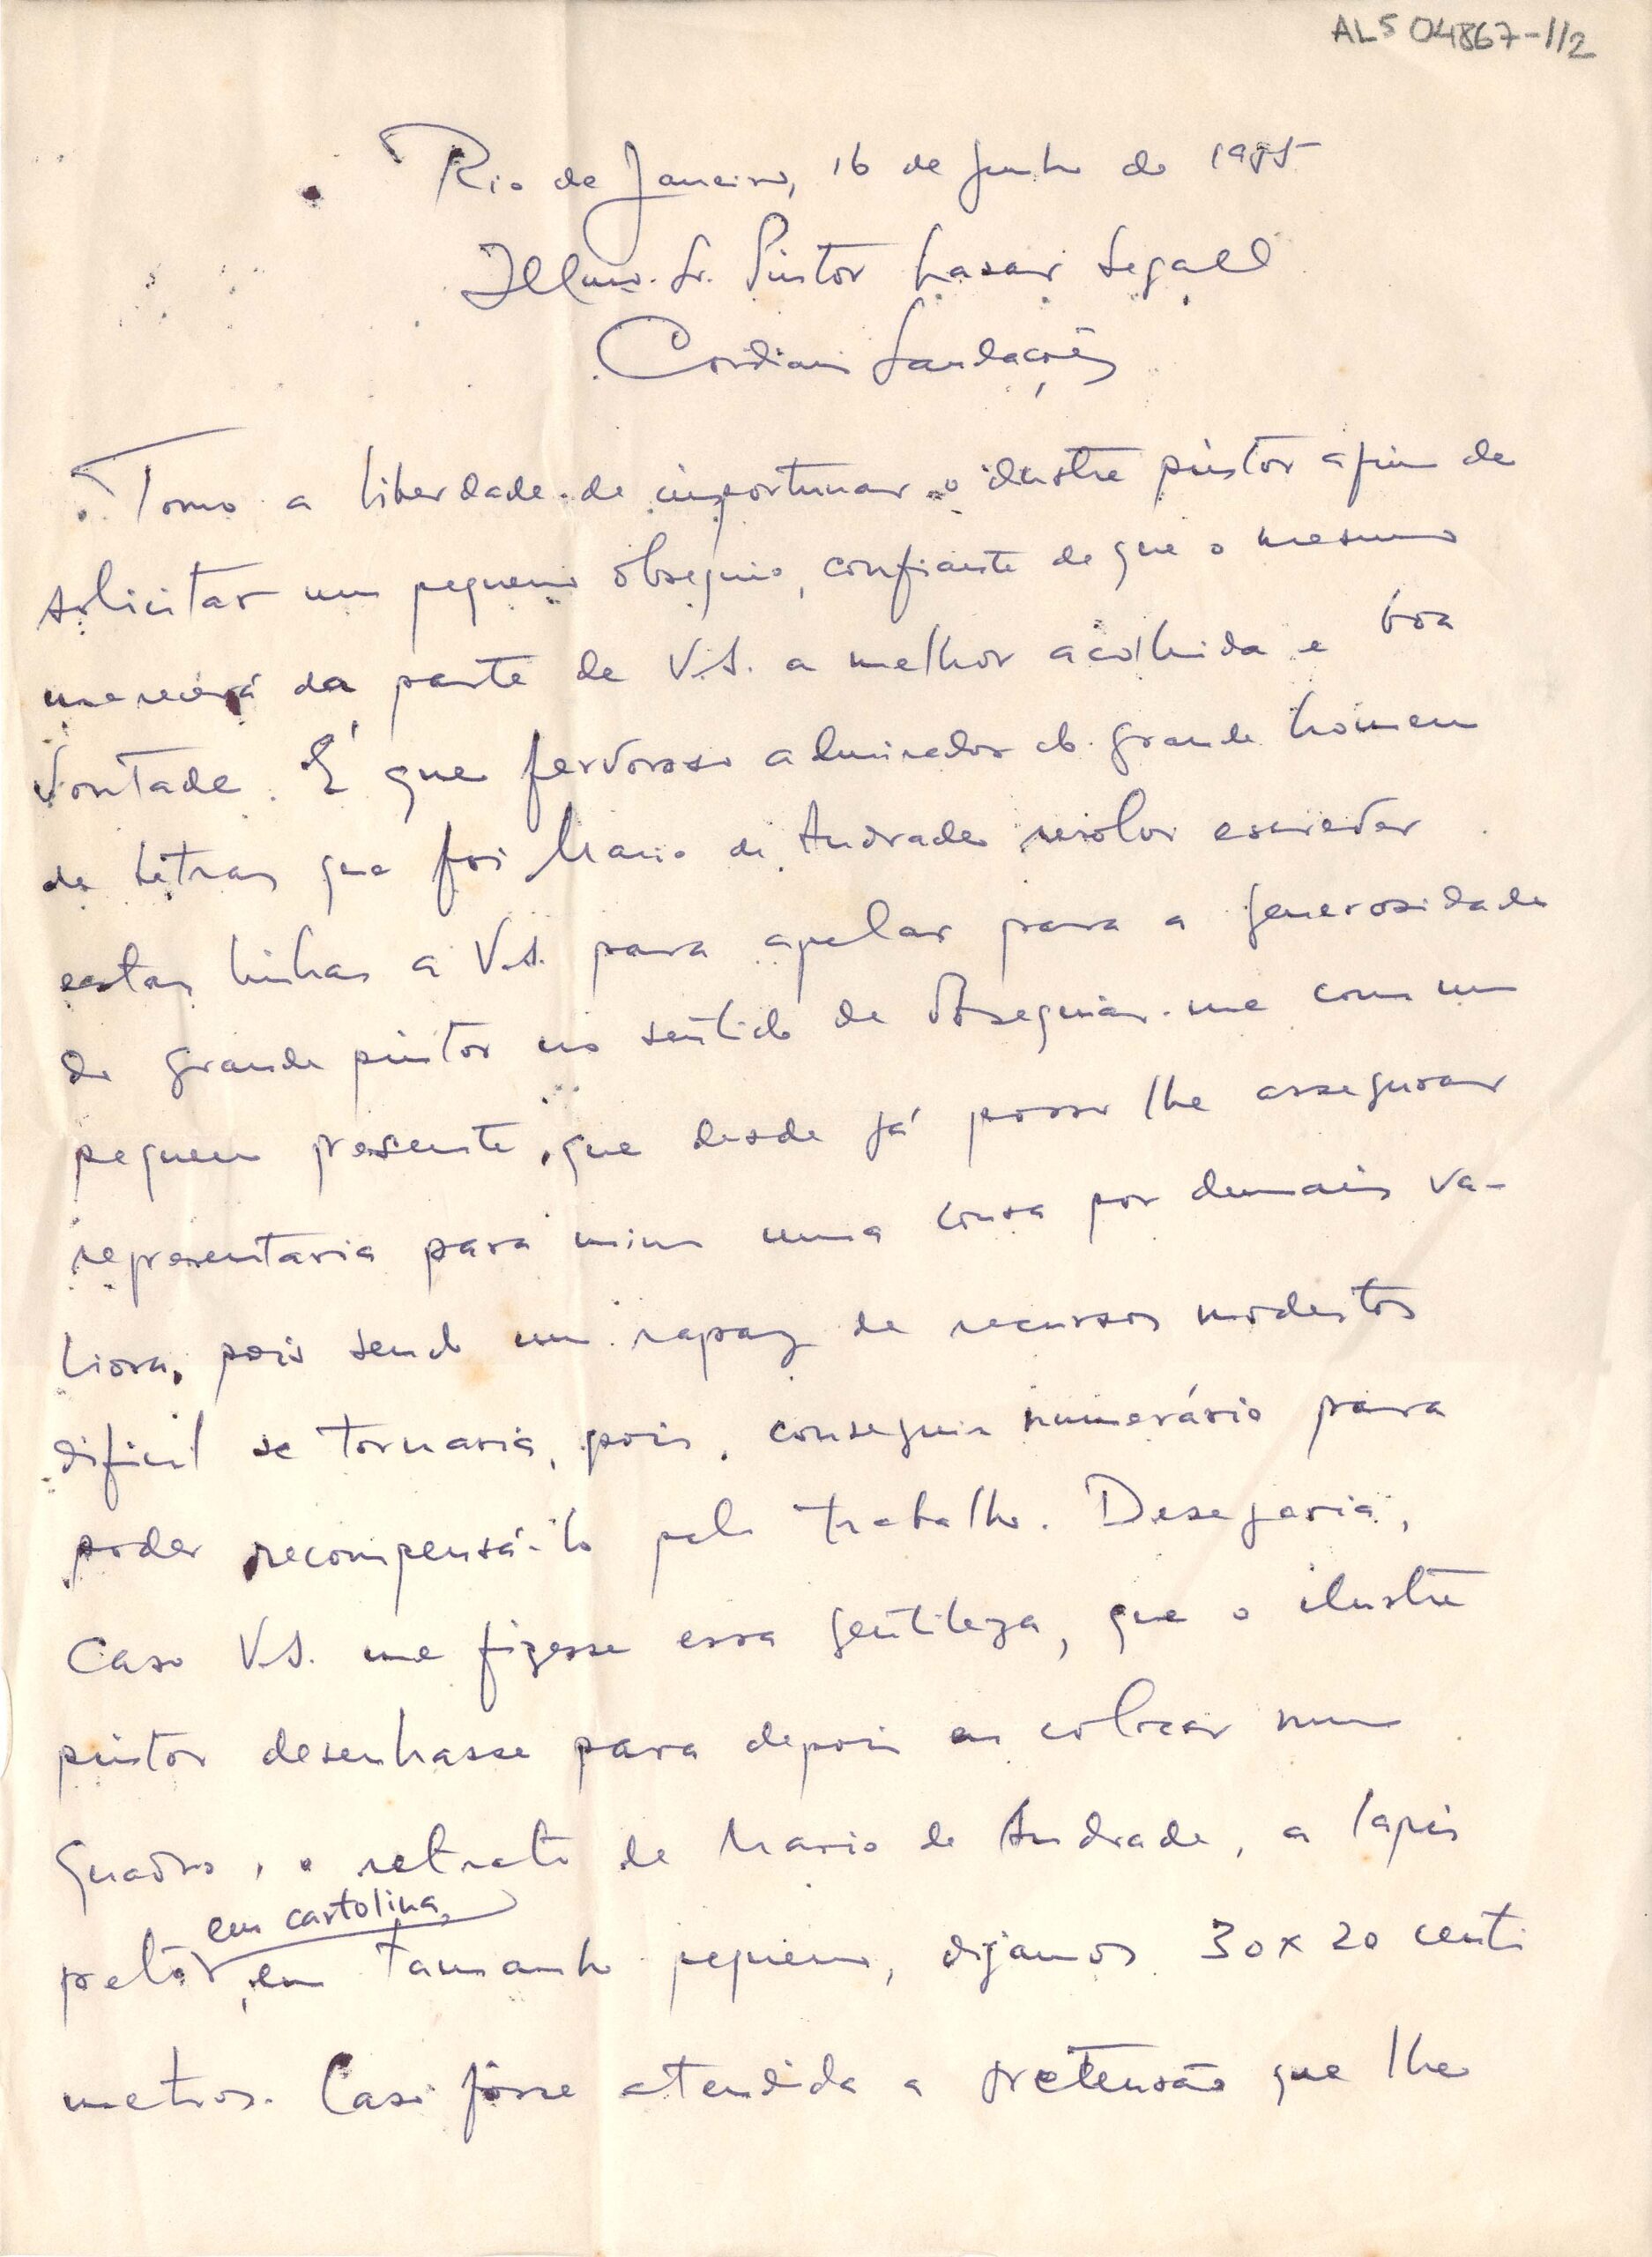 ALS 04867-1/2
Rio de Janeiro, 16 de Junho de 19
Illmo. Sr. Pintor Lasar Segall
Cordiais Saudações
Tomo a liberdade de importunar o ilustre pintor afim de
solicitar um pequeno obsequio, confiante de que o mesmo
merecerá da parte de V.S. a melhor acolhida e bôa
vontade. É que fervoroso admirador do grande homem
de letras que foi Mario de Andrade resolvi escrever
estas linhas a V.S. para apelar para a generosidade
do grande pintor no sentido de obsequiar-me com um
pequeno presente, que desde já posso lhe assegurar
representaria para mim uma cousa por demais va-
liosa, pois sendo um rapaz de recursos modestos
dificil se tornaria, pois, conseguir numerário para
poder recompensá-lo pelo trabalho. Desejaria,
caso V.S. me fizesse essa gentileza, que o ilustre
pintor desenhasse para depois eu colocar num
quadro, o retrato de Mario de Andrade, a lapis
em cartolina,
preto, em tamanho pequeno, digamos 30x20 centi
metros. Caso fôsse atendida a pretensão que lhe